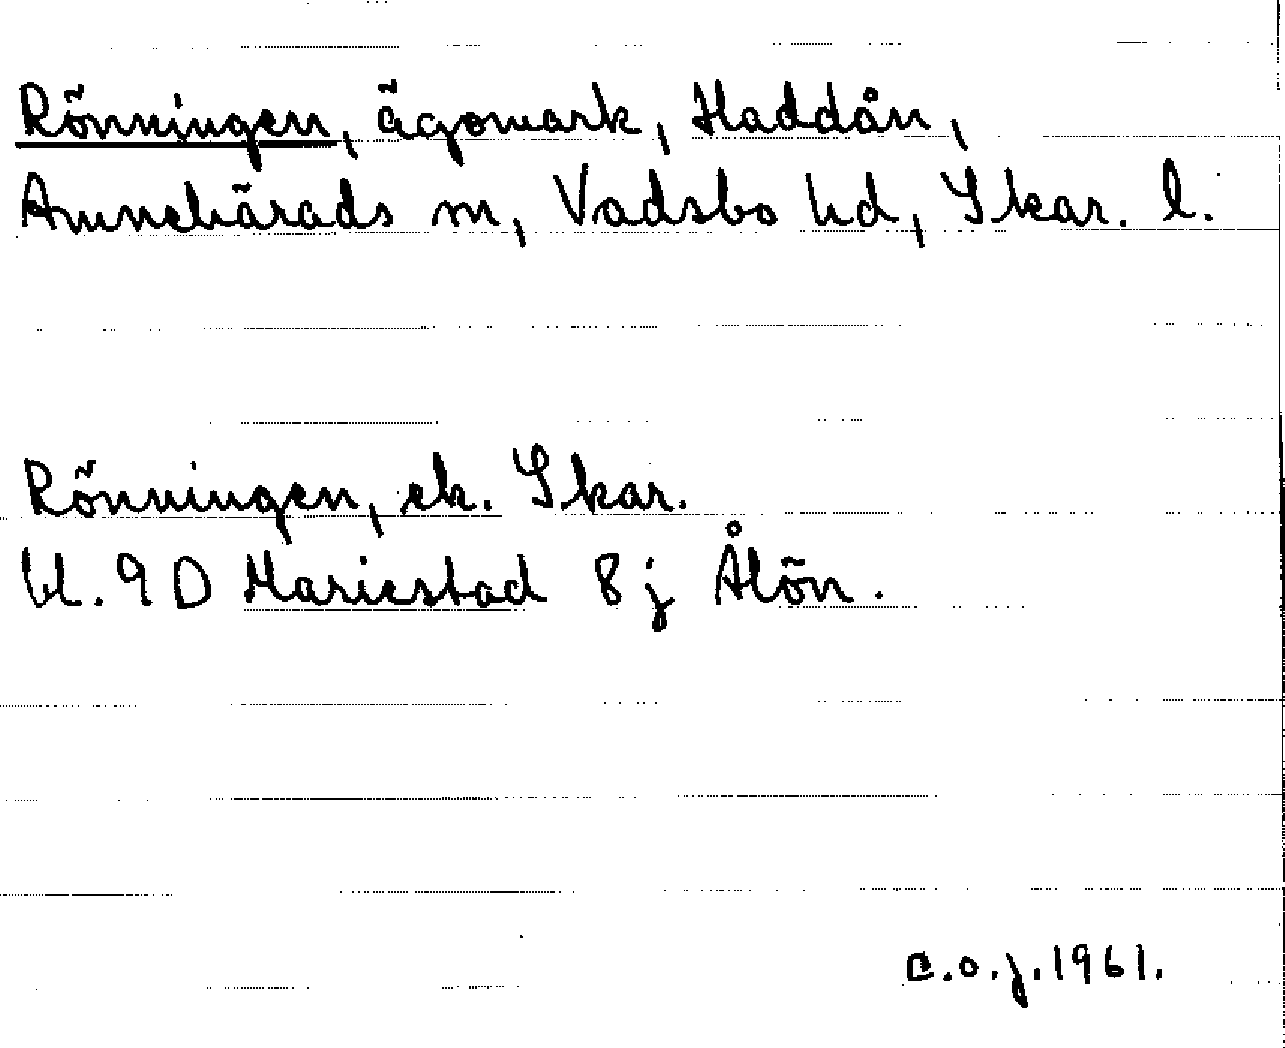 Rönningen, ägomark, Haddån,
Amnehärads sn, Vadsbo hd, Skar. l.
Rönningen, ek. Skar.
bl. 9 D Mariestad 8 j Ålön.
C.O.J. 1961.